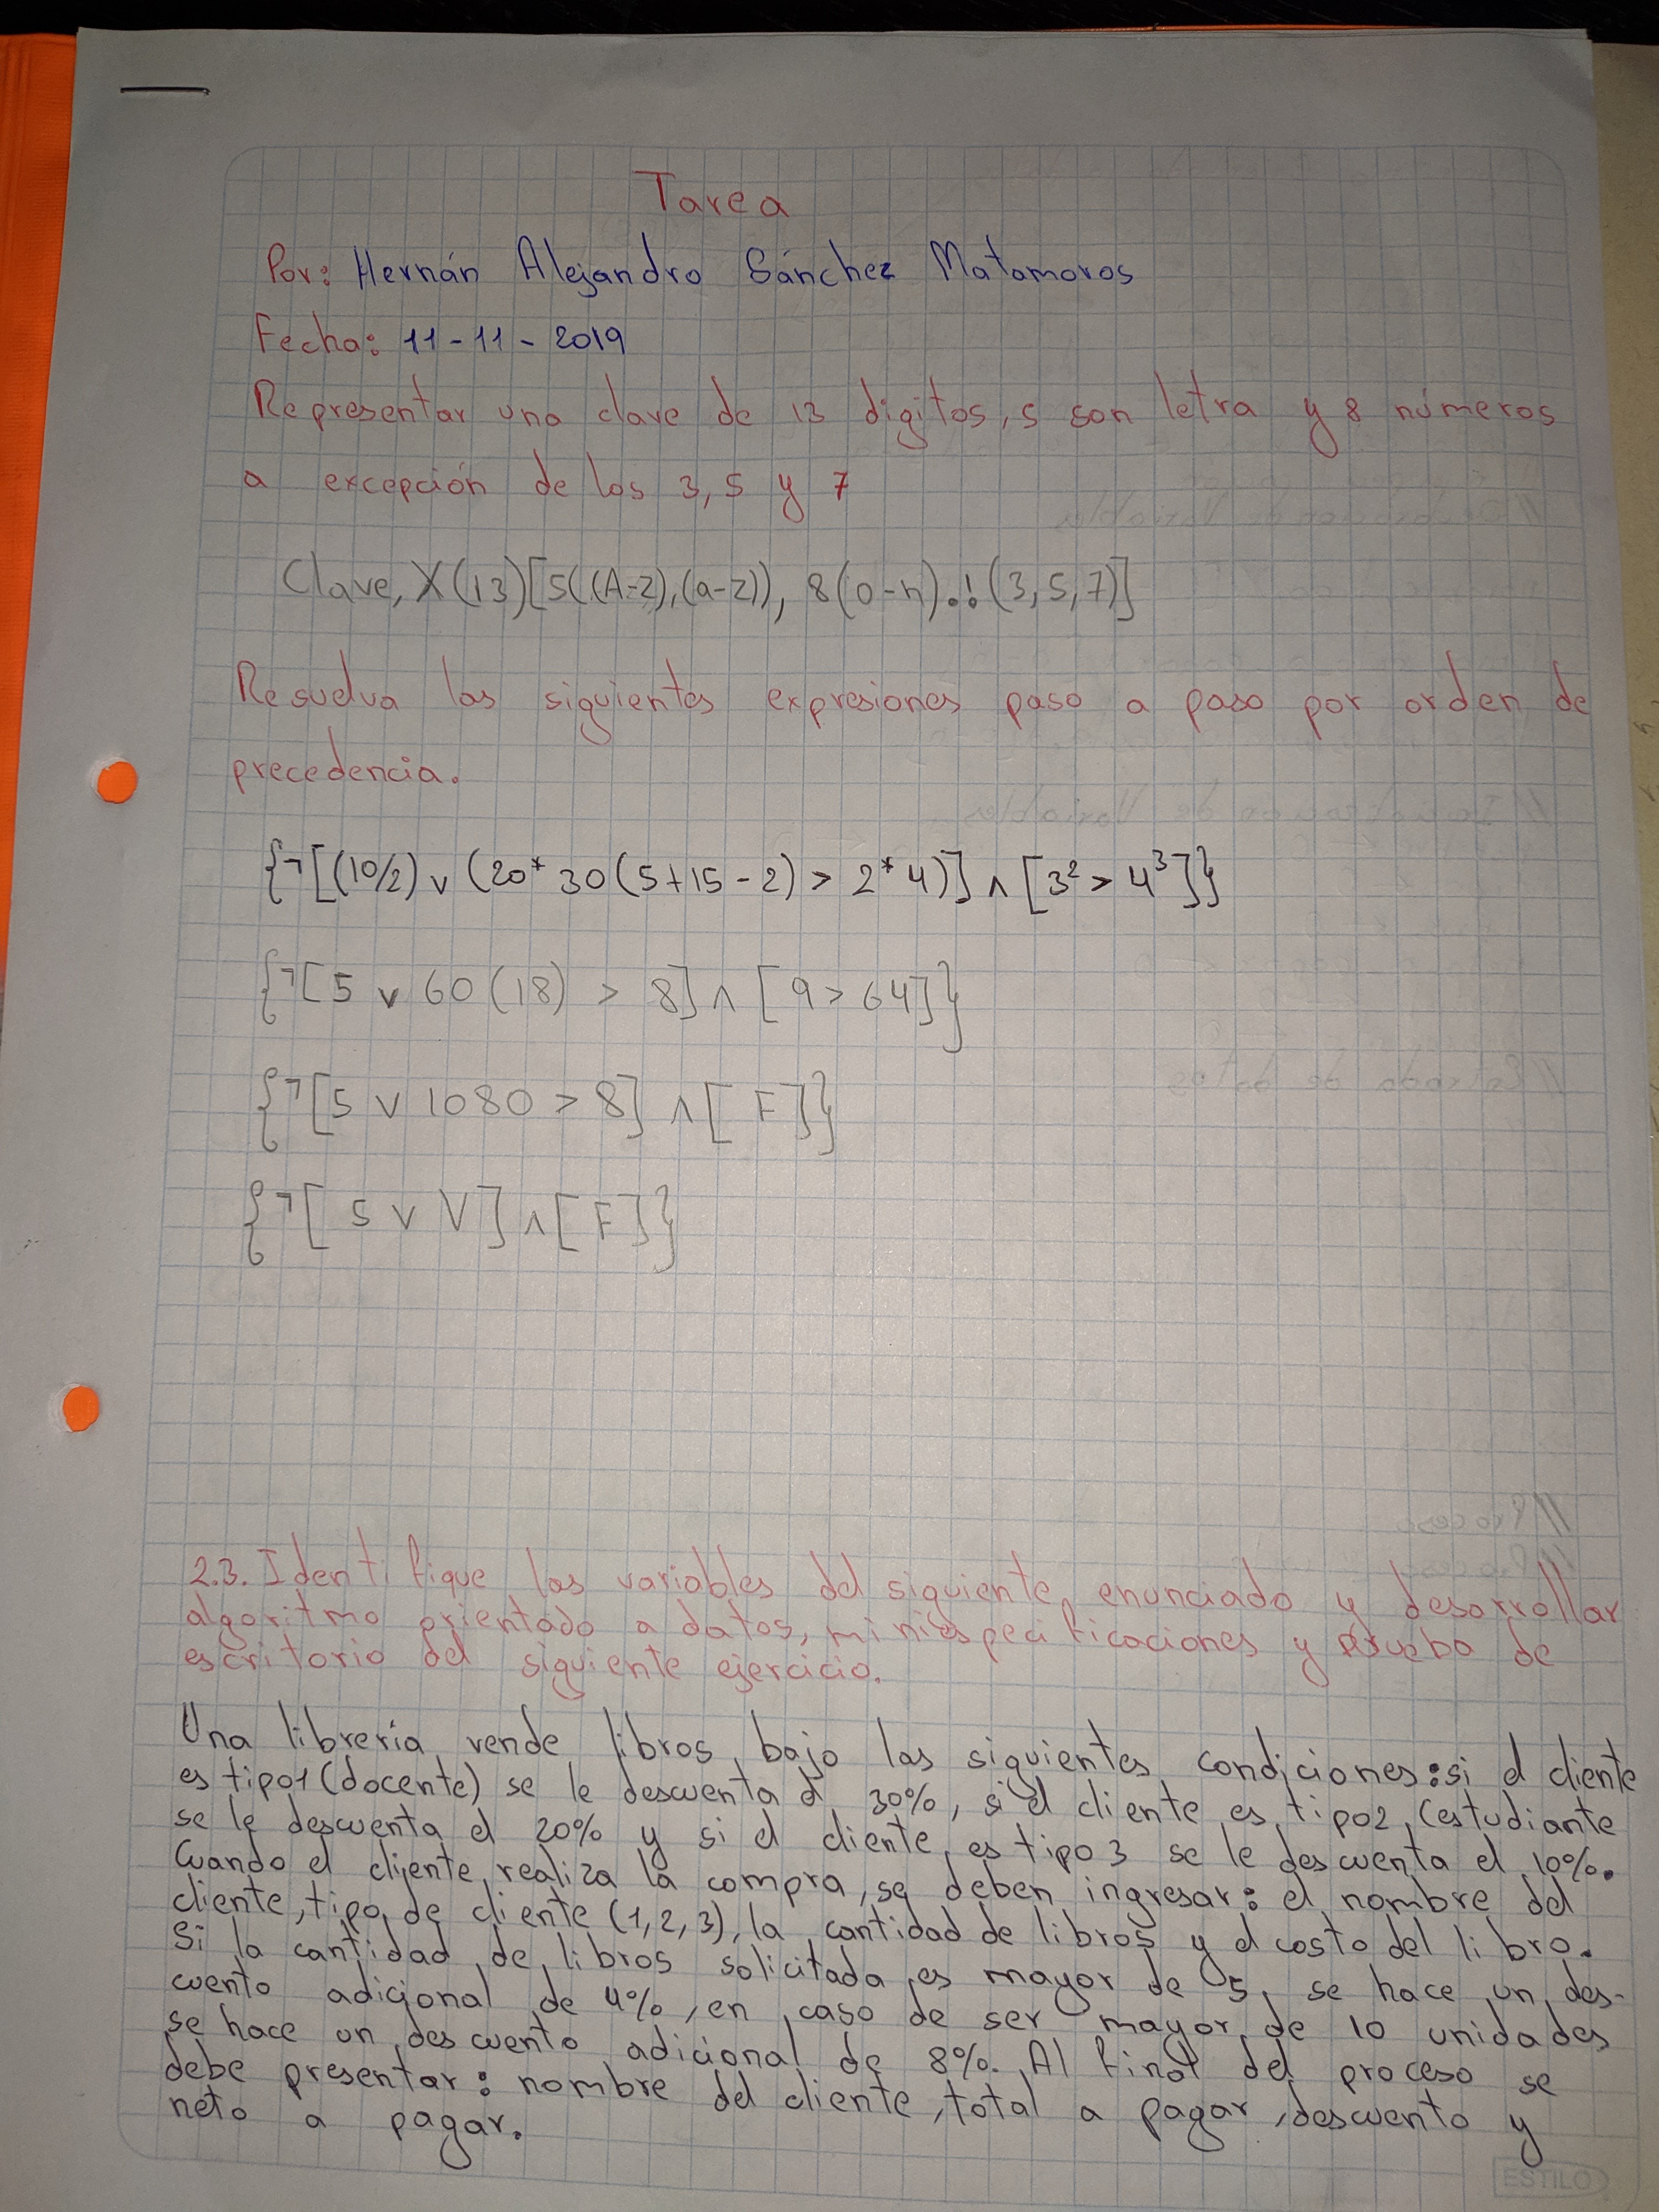 Tarea
Por: Hernán Alejandro Sánchez Matamoros
Fecha: 11-11-2019
Representar una clave de 13 digitos, 5 son letra y 8 números
a excepción de los 3, 5 y 7
Clave, X(13)[5((A-z),(a-z)), 8(0-n).!(3,5,7)]
Resuelva las siguientes expresiones paso a paso por orden de
precedencia.
{¬[(10/2) ∨ (20* 30(5+15-2) > 2*4)] ∧ [3² > 4³]}
{¬[5 ∨ 60(18) > 8] ∧ [9 > 64]}
{¬[5 ∨ 1080 > 8] ∧ [F]}
{¬[5 ∨ V] ∧ [F]}
2.3. Identifique las variables del siguiente enunciado y desarrollar
algoritmo orientado a datos, miniespecificaciones y prueba de
escritorio del siguiente ejercicio.
Una librería vende libros bajo las siguientes condiciones: si el cliente
es tipo1 (docente) se le descuenta el 30%, si el cliente es tipo2 (estudiante
se le descuenta el 20% y si el cliente es tipo 3 se le descuenta el 10%.
Cuando el cliente realiza la compra, se deben ingresar: el nombre del
cliente, tipo de cliente (1,2,3), la cantidad de libros y el costo del libro.
Si la cantidad de libros solicitada es mayor de 5, se hace un des-
cuento adicional de 4%, en caso de ser mayor de 10 unidades
se hace un descuento adicional de 8%. Al final del proceso se
debe presentar: nombre del cliente, total a pagar, descuento y
neto a pagar.
ESTILO